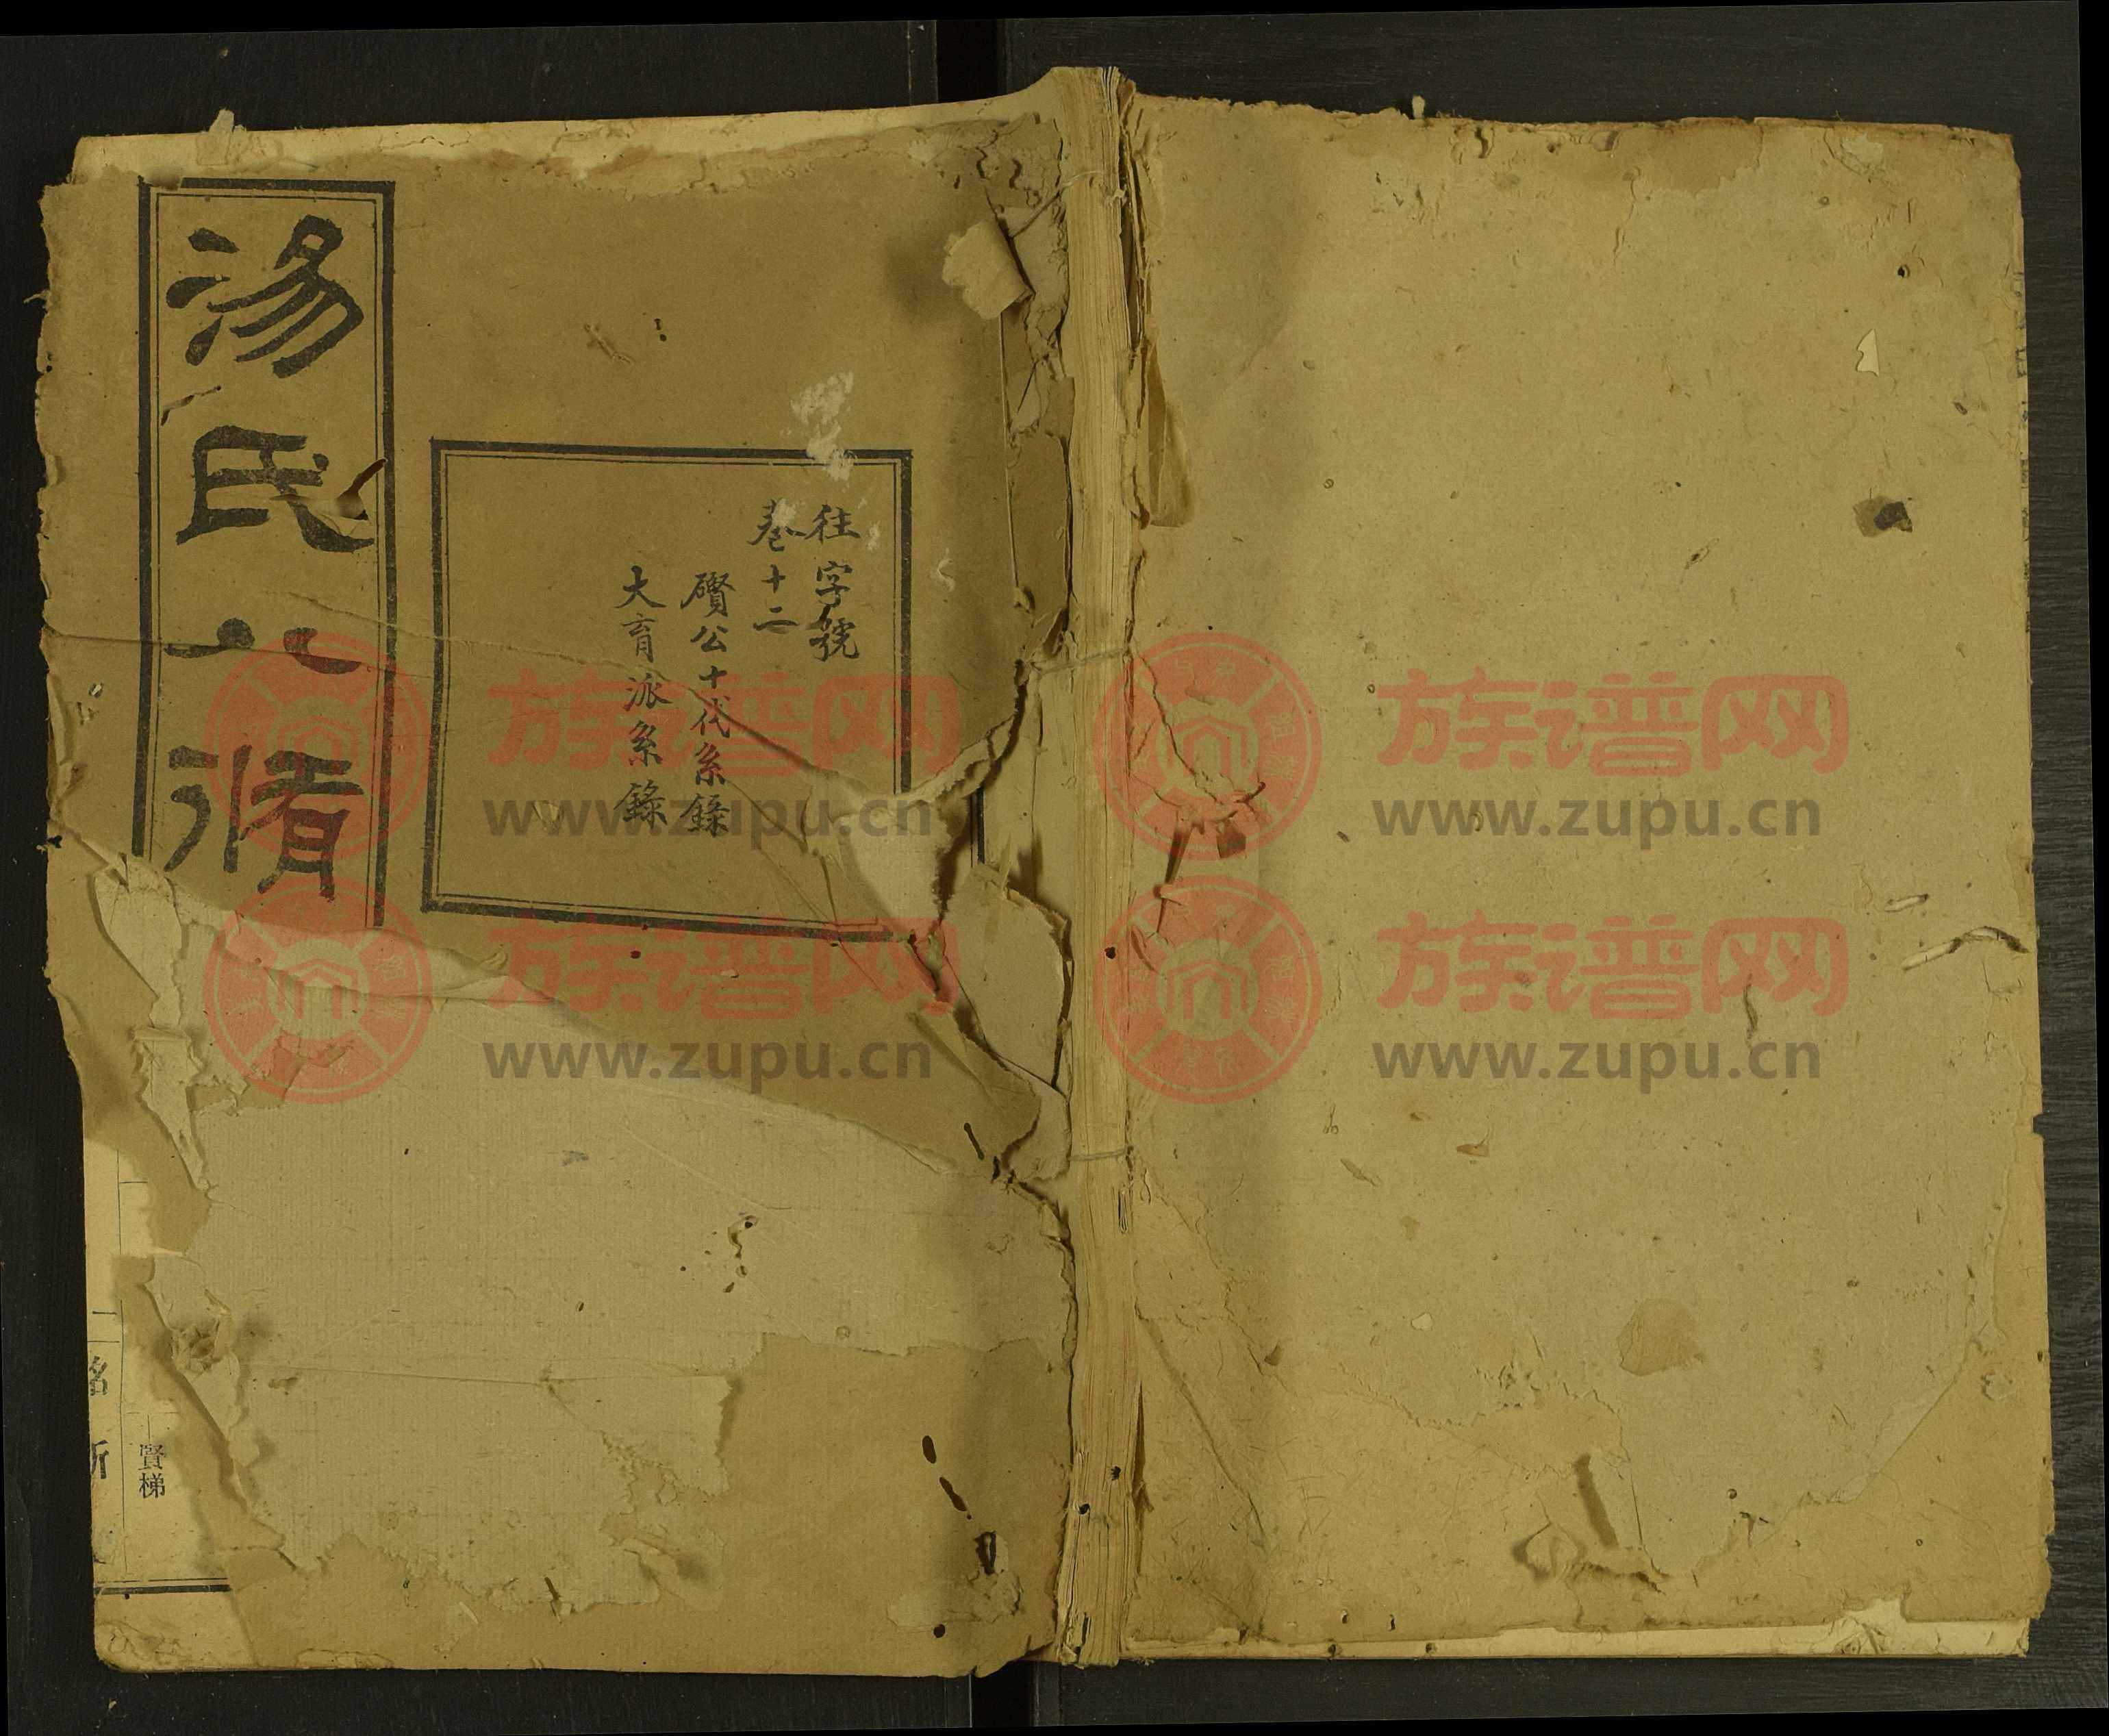 湯氏八脩
往字號
卷十二
礥公十代系錄
大育派系錄
賢梯
族谱网
www.zupu.cn
族谱网
www.zupu.cn
族谱网
www.zupu.cn
族谱网
www.zupu.cn